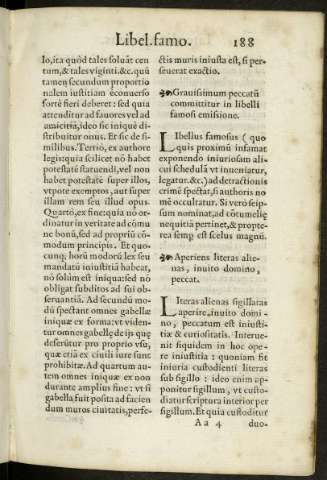 Libel.famo. 188
lo,ita quòd tales soluāt cen
tum,& tales viginti.&c. quū
tamen secundum proportio
nalem iustitiam èconuerso
fortè fieri deberet: sed quia
attenditur ad fauores vel ad
amicitiā, ideo sic iniquè di-
stribuitur onus. Et sic de si-
milibus. Tertiò, ex authore
legis: quia scilicet nō habet
potestatē statuendi, vel non
habet potestatē super illos,
vt potè exemptos, aut super
illam rem seu illud opus.
Quartò, ex fine: quia nō or-
dinatur in veritate ad cōmu
ne bonū, sed ad propriū cō-
modum principis. Et quo-
cunq; horū modorū lex seu
mandatū iniustitiā habeat,
nō solùm est iniqua: sed nō
obligat subditos ad sui ob-
seruantiā. Ad secundū mo-
dū spectant omnes gabellæ
iniquæ ex forma: vt viden-
tur omnes gabellę de ijs quę
deferūtur pro proprio vsu,
quæ etiā ex ciuili iure sunt
prohibitæ. Ad quartum au-
tem omnes iniquæ ex non
durante amplius fine: vt si
gabella fuit posita ad facien
dum muros ciuitatis, perfe-
ctis muris iniusta est, si per-
seuerat exactio.
Grauissimum peccatū
committitur in libelli
famosi emissione.
Libellus famosus (quo
quis proximū infamat
exponendo iniuriosum ali-
cui schedulā vt inueniatur,
legatur.&c.) ad detractionis
crimē spectat, si authoris no
mē occultatur. Si verò seip-
sum nominat, ad cōtumelię
nequitiā pertinet, & propte-
rea semp est scelus magnū.
Aperiens literas alie-
nas, inuito domino,
peccat.
Literas alienas sigillatas
aperire, inuito domi-
no, peccatum est iniusti-
tiæ & curiositatis. Interue-
nit siquidem in hoc ope-
re iniustitia: quoniam fit
iniuria custodienti literas
sub sigillo: ideo enim ap-
ponitur sigillum, vt custo-
diatur scriptura interior per
sigillum. Et quia custoditur
A a 4 duo-